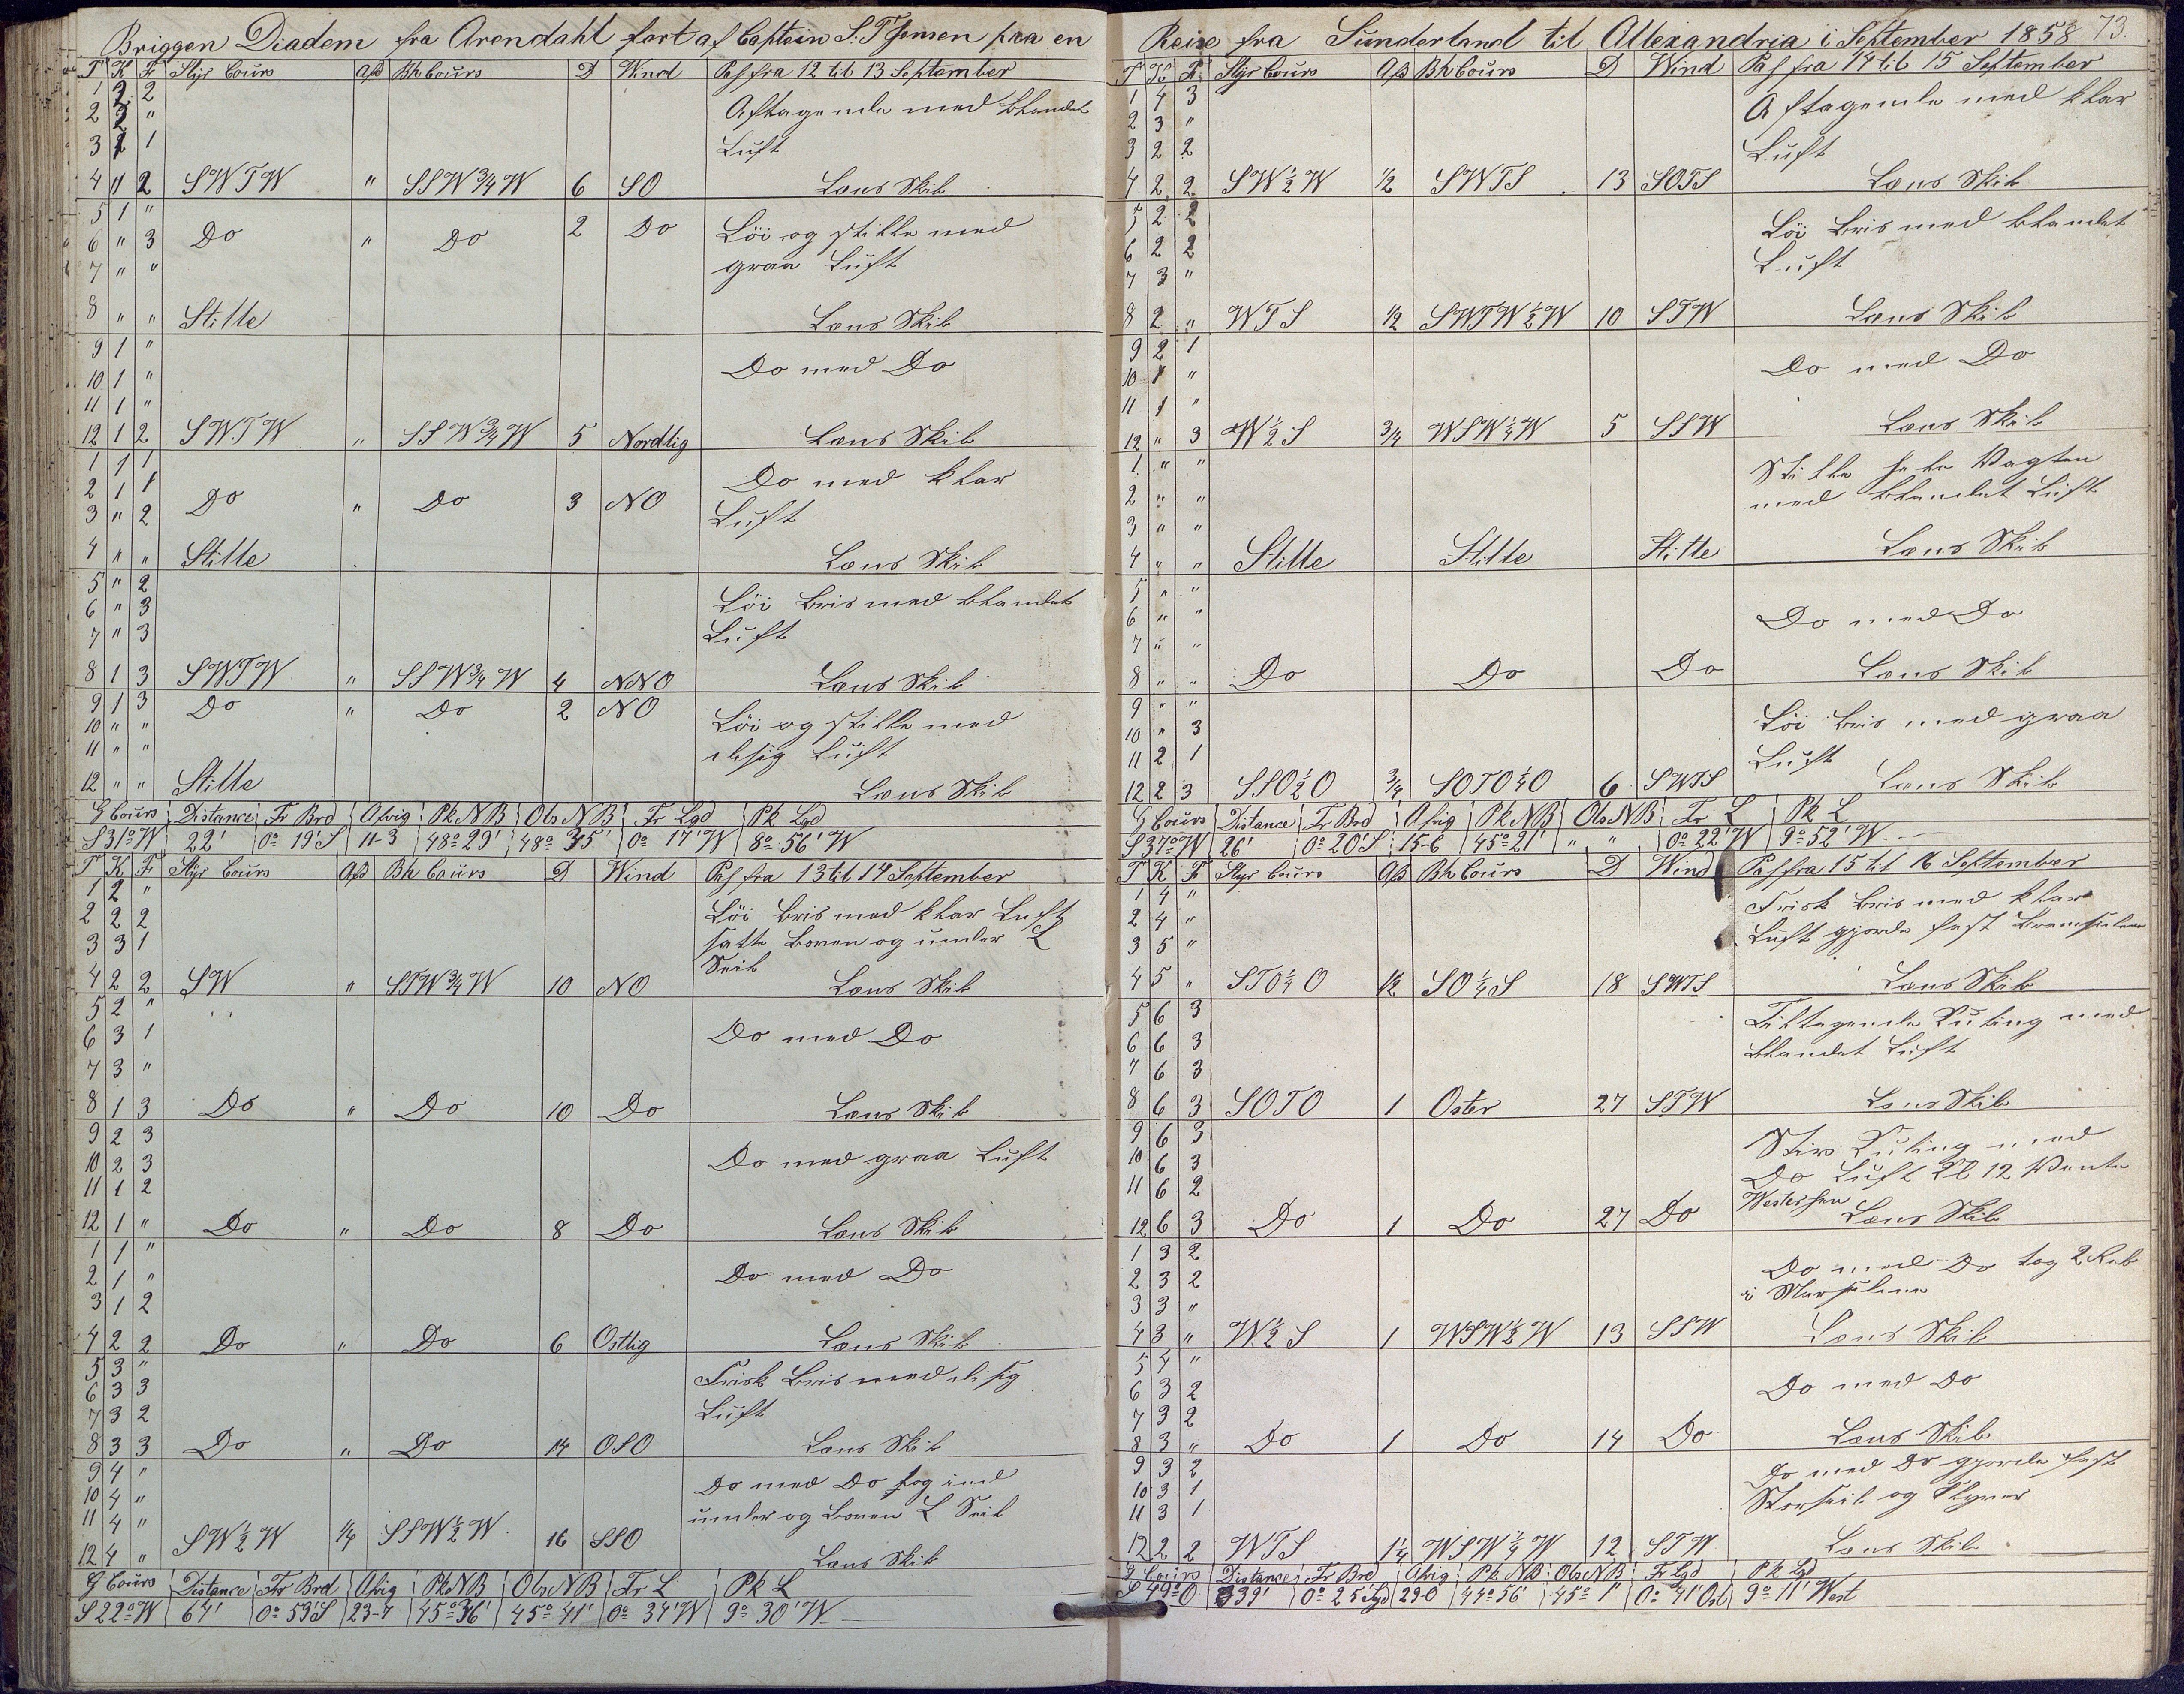 Briggen Diadem fra Arendahl fört af Captein S. T. Jensen paa en
T K F Styr Cours Afd Bh Cours D Wind Pas fra 12 til 13 September
1 2 2 Aftagende med blandet
2 3 "
3 2 1 Luft
4 " 2 SWTW " SSW¾W 6 SO Læns Skib
5 1 "
6 " 3 Do " Do 2 Do Löi og stille med
7 " " graa Luft
8 " " Stille Læns Skib
9 1 "
10 1 " Do med Do
11 1 "
12 1 2 SWTW " SSW¾W 5 Nordlig Læns Skib
1 1 1 Do med klar
2 1 1 Do " Do 3 NO
3 " 2 Luft
4 " " Stille Læns Skib
5 " 2
6 " 3 Löi Bris med blandet
7 " 3 Luft
8 1 3 SWTW " SSW¾W 4 NNO Læns Skib
9 1 3 Do " Do 2 NO
10 " " Löi og stille med
11 " " disig Luft
12 " " Stille Læns Skib
G Cours Distance Fr Brd Afvig Pk NB Obs NB Fr Lgd Pk Lgd
S31°W 22' 0° 19'S 11-3 48° 29' 48° 35' 0° 17'W 8° 56'W
T K F Styr Cours Afd Bh Cours D Wind Pas fra 13 til 14 September
1 2 "
2 2 2 Löi Bris med klar Luft
3 3 1 satte Boven og under L
Seil
4 2 2 SW " STW¾W 10 NO Læns Skib
5 2 "
6 3 1 Do med Do
7 3 "
8 1 3 Do " Do 10 Do Læns Skib
9 2 3
10 2 3 Do med graa Luft
11 1 2
12 1 " Do " Do 8 Do Læns Skib
1 1 "
2 1 " Do med Do
3 1 2
4 2 2 Do " Do 6 Ostlig Læns Skib
5 3 " Frisk Bris med disig
6 3 3
7 3 2 Luft
8 3 3 Do " Do 14 OSO Læns Skib
9 4 " Do med Do tog ind
10 4 "
11 4 " under og Boven L Seil
12 4 " SW½W ¼ SSW½W 16 SSO Læns Skib
G Cours Distance Fr Brd Afvig Pk NB Obs NB Fr L Pk L
S22°W 64' 0° 59'S 23-7 45° 36' 45° 41' 0° 34'W 9° 30'W
Reise fra Sunderland til Allexandria i September 1858 73.
T K F Styr Cours Afd Bh Cours D Wind Pas fra 14 til 15 September
1 4 3 Aftagende med klar
2 3 "
3 2 2 Luft
4 2 2 SW½W ½ SWTS 13 SOTS Læns Skib
5 2 2 Löi Bris med blandet
6 2 2 Luft
7 3 "
8 2 " WTS ½ SWTW½W 10 STW Læns Skib
9 2 1 Do med Do
10 1 "
11 1 "
12 " 3 W½S ¾ WSW¼W 5 SSW Læns Skib
1 " " Stille hele Vagten
2 " " med blandet Luft
3 " "
4 " " Stille Stille Stille Læns Skib
5 " "
6 " " Do med Do
7 " "
8 " " Do Do Do Læns Skib
9 " " Löi Bris med graa
10 " 3
11 2 1 Luft
12 2 3 SSO½O ¾ SOTO¼O 6 SWTS Læns Skib
G Cours Distance Fr Brd Afvig Pk NB Obs NB Fr L Pk L
S37°W 26' 0° 20'S 15-6 45° 21' " " 0° 22'W 9° 52'W
T K F Styr Cours Afd Bh Cours D Wind Pas fra 15 til 16 September
1 4 " Frisk Bris med klar
2 4 "
3 5 " Luft gjorde fast Bramseilene
4 5 " STO¼O ½ SO¼S 18 SWTS Læns Skib
5 6 3 Tiltagende Kuling med
6 6 3 blandet Luft
7 6 3
8 6 3 SOTO 1 Oster 27 STW Læns Skib
9 6 3 Stiv Kuling med
10 6 3 Do Luft Kl 12 Vente
11 6 2 Westerhen
12 6 3 Do 1 Do 27 Do Læns Skib
1 3 2 Do med Do tog 2 Reb
2 3 2 i Marseilene
3 3 "
4 3 " W½S 1 WSW½W 13 SSW Læns Skib
5 4 "
6 3 2 Do med Do
7 3 2
8 3 " Do 1 Do 14 Do Læns Skib
9 3 2 Do med Do gjorde fast
10 3 1 Storseil og Klyver
11 3 1
12 2 2 WTS 1¼ WSW¼W 12 STW Læns Skib
G Cours Distance Fr Brd Afvig Pk NB Obs NB Fr Lgd Pk Lgd
S49°O 39' 0° 25'Syd 29-0 44° 56' 45° 1' 0° 41'Ost 9° 11' West